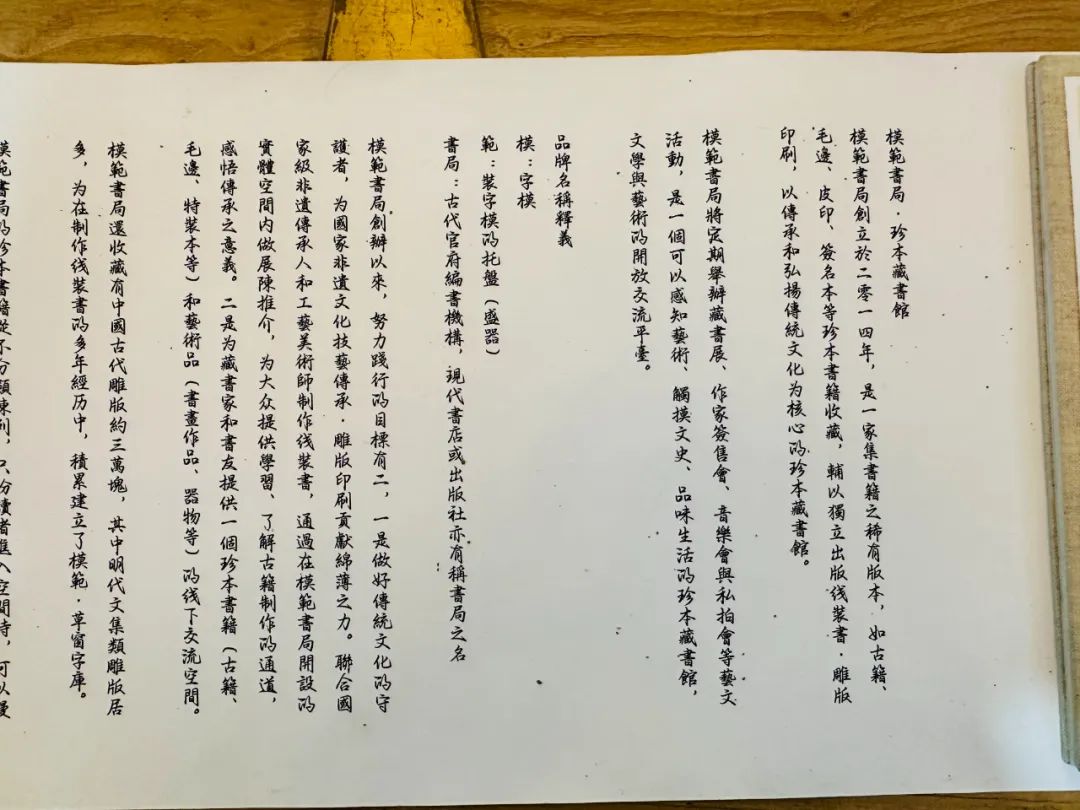 模範書局·珍本藏書館
模範書局創立於二零一四年，是一家集書籍之稀有版本，如古籍、
毛邊、皮印、簽名本等珍本書籍收藏，輔以獨立出版线裝書·雕版
印刷，以傳承和弘揚傳統文化为核心的珍本藏書館。
模範書局將定期舉辦藏書展、作家簽售會、音樂會與私拍會等藝文
活動，是一個可以感知藝術、觸摸文史、品味生活的珍本藏書館，
文學與藝術的開放交流平臺。
品牌名稱释義
模：字模
範：裝字模的托盤（盛器）
書局：古代官府編書機構，現代書店或出版社亦有稱書局之名
模範書局創辦以来，努力踐行的目標有二，一是做好傳統文化的守
護者，为國家非遺文化技藝傳承·雕版印刷貢獻綿薄之力。聯合國
家級非遺傳承人和工藝美術師制作线裝書，通過在模範書局開設的
實體空間内做展陳推介，为大众提供學習、了解古籍制作的通道，
感悟傳承之意義。二是为藏書家和書友提供一個珍本書籍（古籍、
毛邊、特裝本等）和藝術品（書畫作品、器物等）的线下交流空間。
模範書局還收藏有中國古代雕版約三萬塊，其中明代文集類雕版居
多，为在制作线裝書的多年經历中，積累建立了模範·草窗字庫。
模範書局的珍本書籍